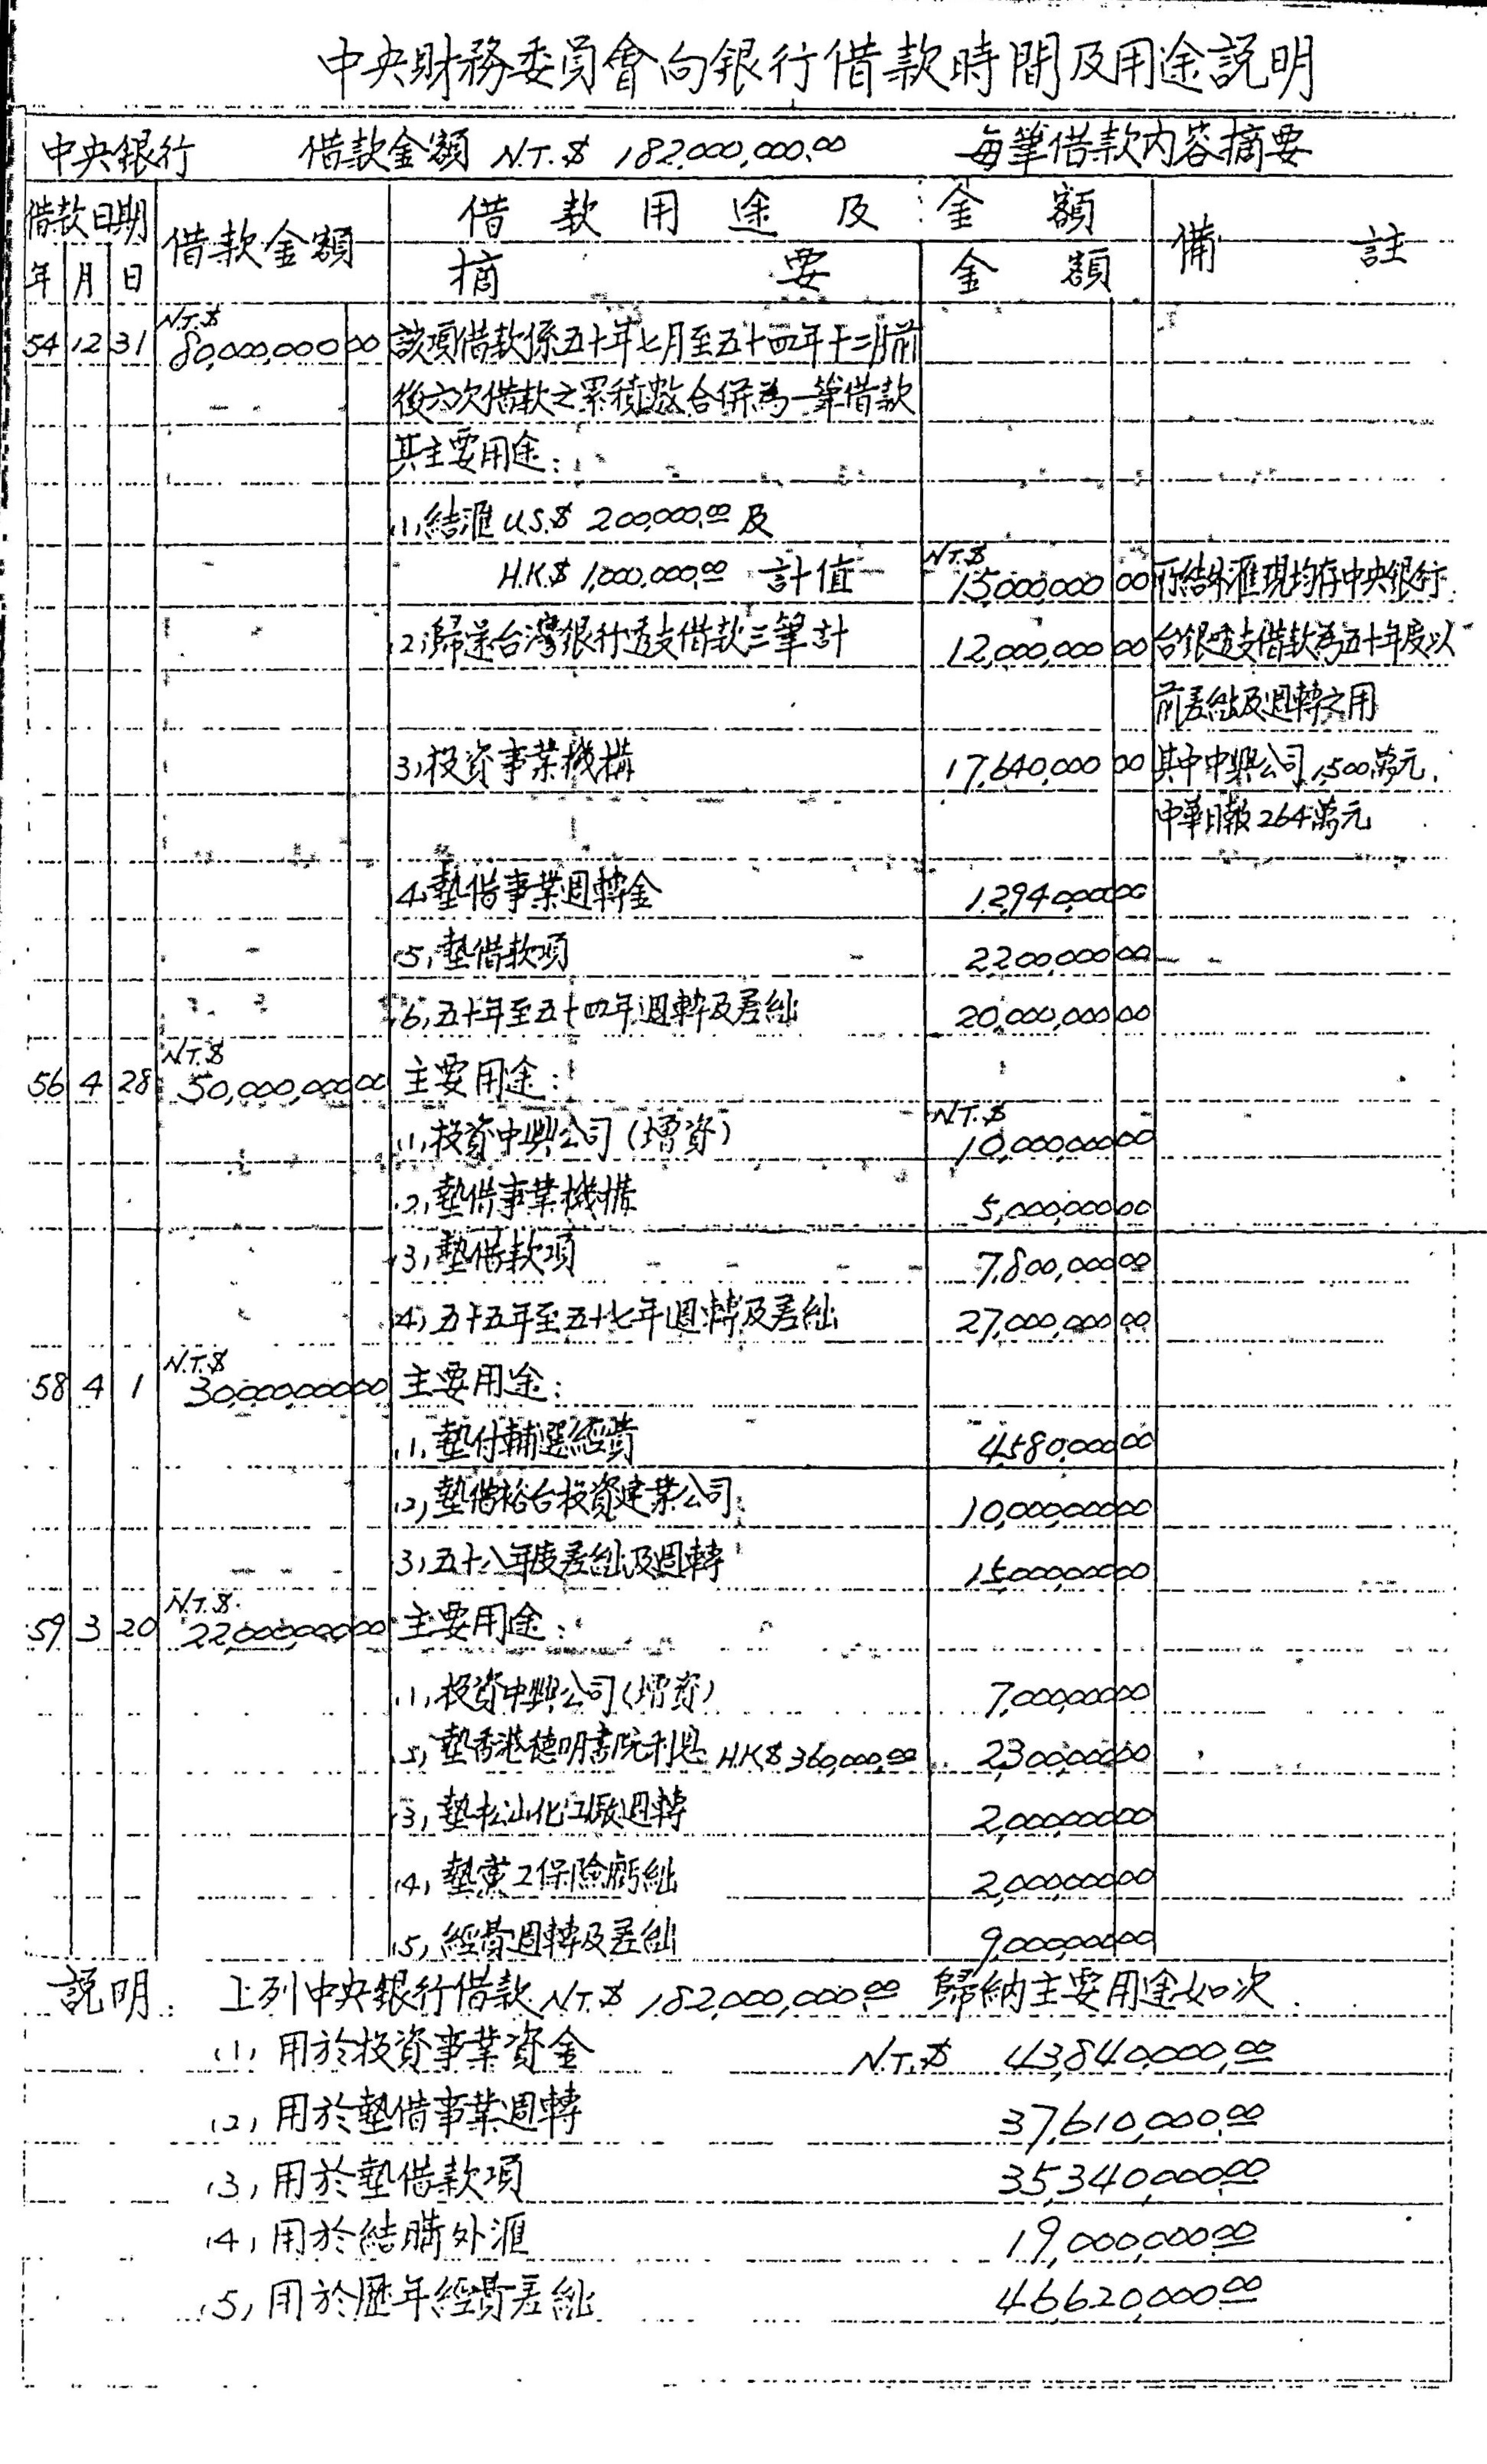 中央財務委員會向銀行借款時間及用途説明
中央銀行 借款金額 N.T.$ 182,000,000.00 每筆借款内容摘要
借款日期 借款金額 借款用途及金額 備註
年 月 日 摘要 金額
54 12 31 N.T.$ 80,000,000 00 該項借款係五十年七月至五十四年十二月前
後六次借款之累積數合併為一筆借款
其主要用途:
(1)結滙 U.S.$ 200,000.00 及
H.K.$ 1,000,000.00 計值 N.T.$ 15,000,000 00 所結外滙現均存中央銀行
(2)歸還台灣銀行透支借款三筆計 12,000,000 00 台銀透支借款為五十年度以
前差絀及週轉之用
(3)投資事業機構 17,640,000 00 其中中興公司1,500萬元,
中華日報264萬元
(4)墊借事業週轉金 12,940,000 00
(5)墊借款項 2,200,000 00
(6)五十年至五十四年週轉及差絀 20,000,000 00
56 4 28 N.T.$ 50,000,000 00 主要用途:
(1)投資中興公司(增資) N.T.$ 10,000,000 00
(2)墊借事業機構 5,000,000 00
(3)墊借款項 7,800,000 00
(4)五十五年至五十七年週轉及差絀 27,000,000 00
58 4 1 N.T.$ 30,000,000 00 主要用途:
(1)墊付輔選經費 4,580,000 00
(2)墊借裕台投資建業公司 10,000,000 00
(3)五十八年度差絀及週轉 15,000,000 00
59 3 20 N.T.$ 22,000,000 00 主要用途:
(1)投資中興公司(增資) 7,000,000 00
墊香港德明書院利息 H.K.$ 360,000.00 2,300,000 00
(3)墊松山化工廠週轉 2,000,000 00
(4)墊黨工保險虧絀 2,000,000 00
(5)經費週轉及差絀 9,000,000 00
説明: 上列中央銀行借款 N.T.$ 182,000,000.00 歸納主要用途如次
(1)用於投資事業資金 N.T.$ 43,840,000.00
(2)用於墊借事業週轉 37,610,000.00
(3)用於墊借款項 35,340,000.00
(4)用於結購外滙 19,000,000.00
(5)用於歷年經費差絀 46,620,000.00